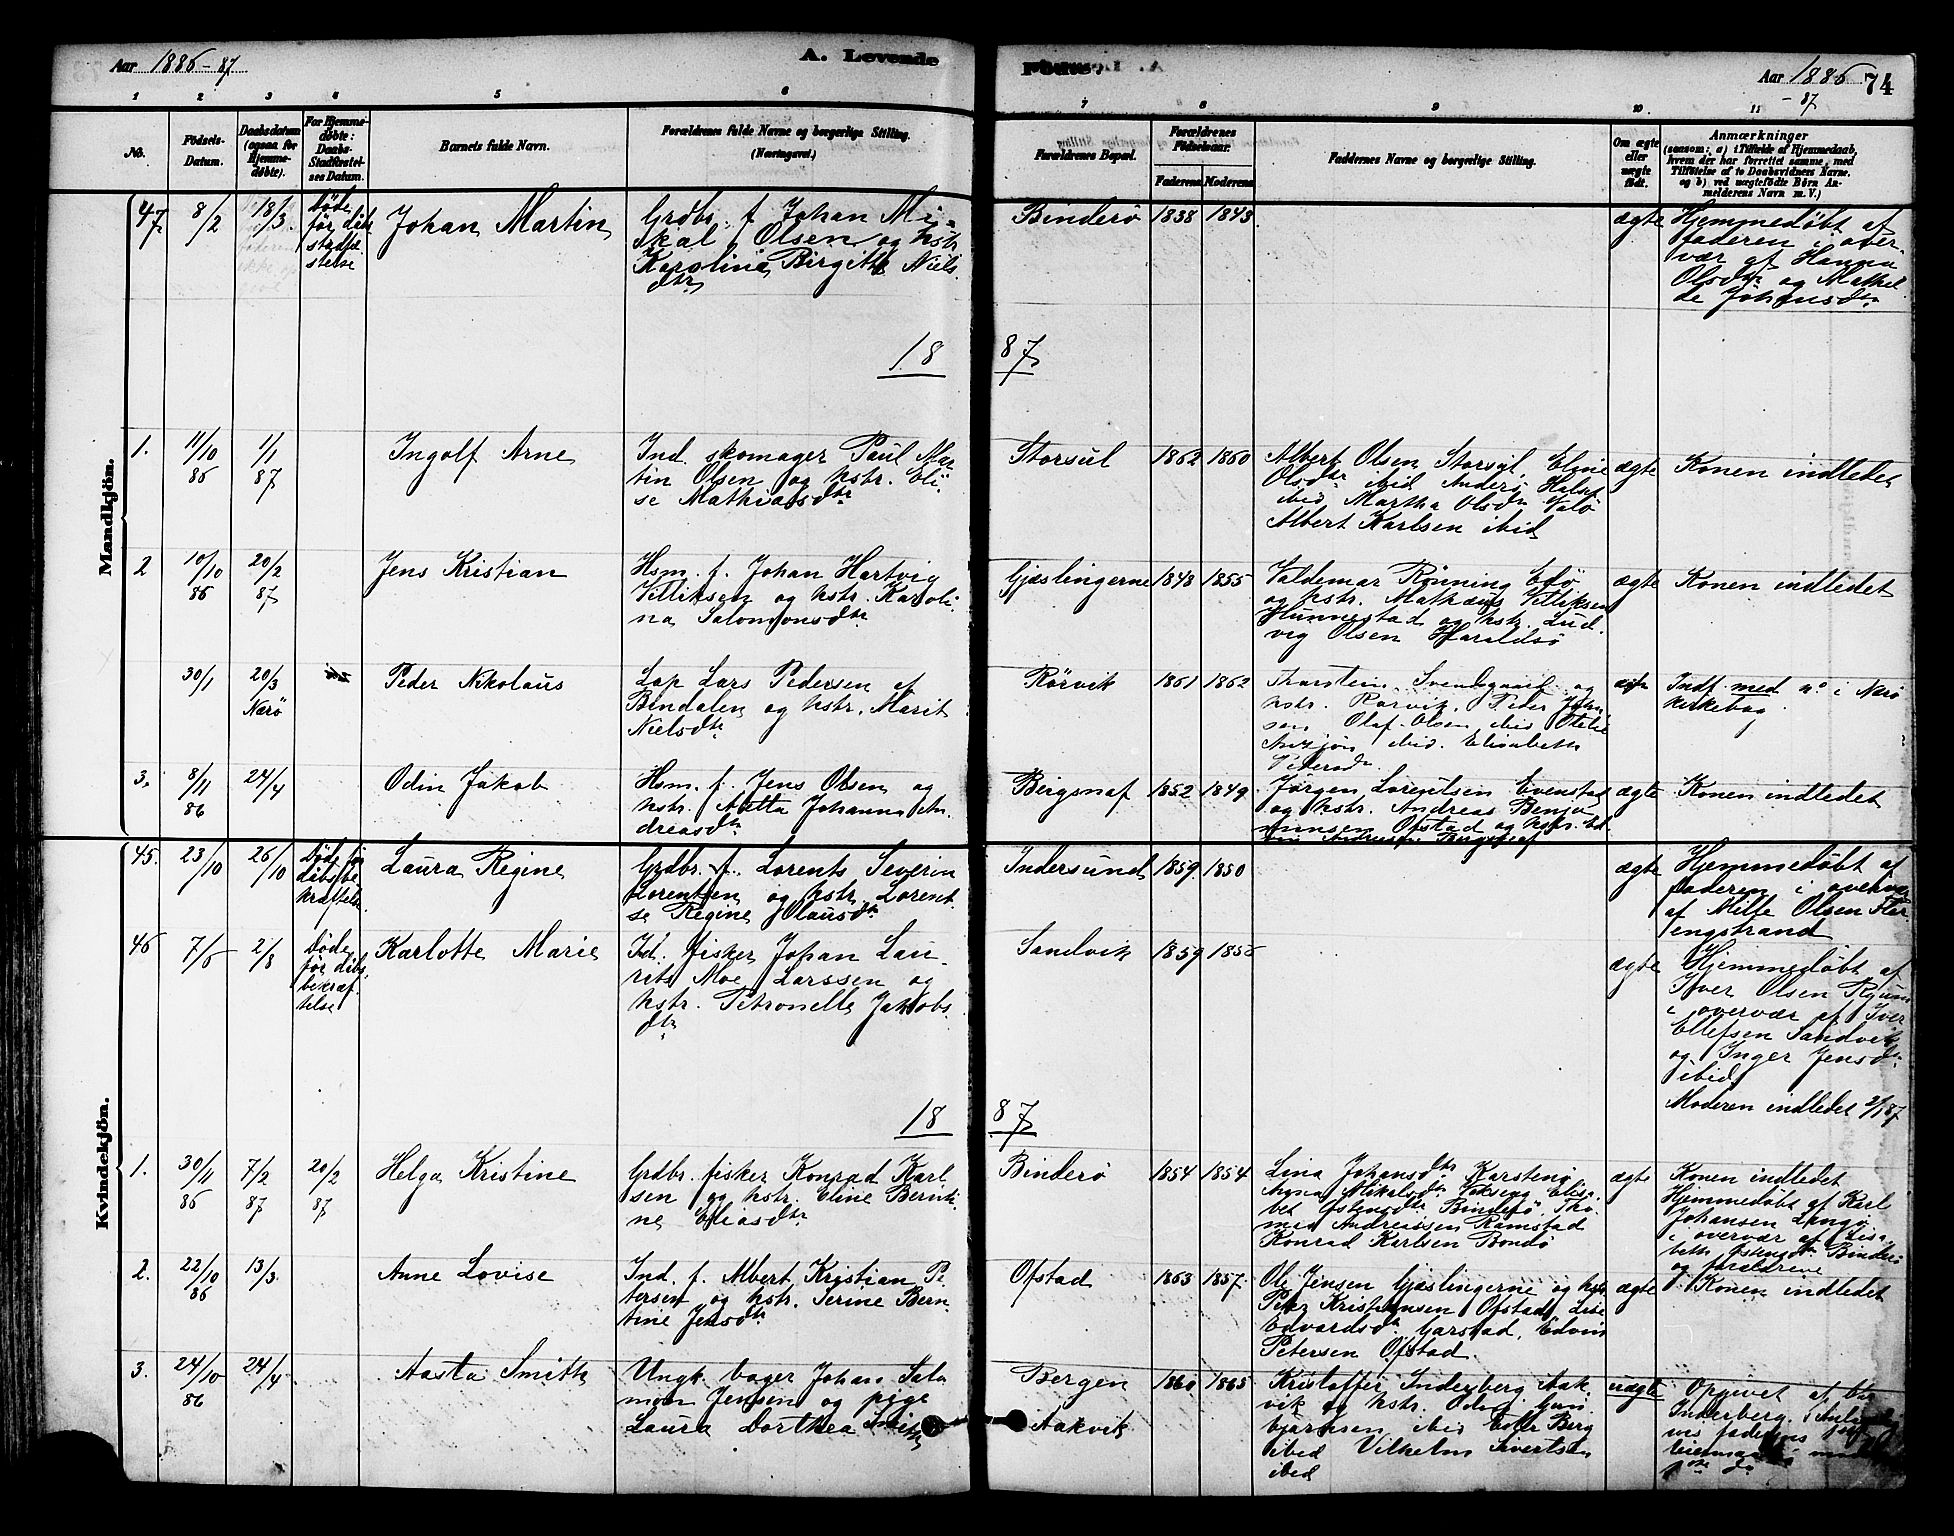 Aar 1886-87
A. Levende
Fødte.
Aar 1886
-87
74
1 2 3 4 5 6 7 8 9 10 11
No.
Fødsels-
Datum.
Daabsdatum
(ogsaa for
Hjemme-
døbte).
For Hjemme-
døbte:
Daabs-
Stadfæstel-
ses Datum.
Barnets fulde Navn.
Forældrenes fulde Navne og borgerlige Stilling.
(Næringsvei.)
Forældrenes Bopæl.
Forældrenes
Fødselsaar.
Faderens
Moderens
Faddernes Navne og borgerlige Stilling.
Om ægte
eller
uægte
født.
Anmærkninger
(saasom: a) i Tilfælde af Hjemmedaab,
hvem der har forrettet samme, med
Tilføielse af to Daabsvidners Navne,
og b) ved uægtefødte Børn An-
melderens Navn m. V.)
Mandkjøn.
47
8/2
18/3
Døde
før dåb
stadfæ
stelse
Johan Martin
Grdbr. f. Johan Mi-
kal Olsen og hstr.
Karoline Birgitte Niels
dtr
Binderø
1838
1843
ægte
Hjemmedøbt af
faderen i over
vær af Hanna
Olsdtr og Mathil
de Johansdtr
18 87
1.
11/10
86
1/1
87
Ingolf Arne
Ind. skomager Paul Mar
tin Olsen og hstr. Eli
se Mathiasdtr
Storsul
1862
1860
Albert Olsen Storsyl, Eline
Olsdtr ibid Anders Halset
ibid Martha Olsdtr Valø
Albert Karlsen ibid
ægte
Konen indledet
2
10/10
86
20/2
87
Jens Kristian
Hsm. f. Johan Hartvig
Villiksen og hstr. Karoli-
na Salomonsdtr
Gjæslingerne
1848
1855
Valdemar Rønning Edø
og hstr. Mathæus Villiksen
Hunnestad og hstr. Lud.
vig Olsen Haraldsø
ægte
Konen indledet
30/1
20/3
Nærø
Peder Nikolaus
Lap Lars Pedersen af
Bindalen og hstr. Marit
Nielsdtr
Rörvik
1861
1862
Thorstein Svendgaard og
hstr. Rørvik, Peder Johan
sen Olaf Olsen ibid Otelie
ibid. Elisabeth
Pedersdtr
ægte
Indf med no i Nærø
kirkebog
3.
8/11
86
24/4
Odin Jakob
Hsm. f. Jens Olsen og
hstr. Anetta Johanna An
dreasdtr
Bergsnaf
1852
1849
Jørgen Lorentsen Evenstad
og hstr. Andreas Benja
minsen Ofstad og hstr. Ed.
Andreasen Bergsnaf
ægte
Konen indledet
Kvindekjøn.
45.
23/10
26/10
Døde før
dåbsbe
kræftelse
Laura Regine
Grdbr. f. Lorents Severin
Lorentsen og hstr. Lorent-
se Regine Olausdtr
Indersund
1859
1850
ægte
Hjemmedøbt af
faderen i overvær
af Olsen
engstrand
46
7/6
2/8
Døde
før dåbs
bekræf
telse
Karlotte Marie
Id. fisker Johan Lau-
rits Moe Larssen og
hstr. Petronelle Jakobs
dtr
Sandvik
1859
1855
ægte
Hjemmedøbt af
Iver Olsen
i overvær af Iver
Ellefsen Sandvik
og Inger Jensdtr
ibid
Moderen indledet 2/1 87
18 87
1.
30/11
86
7/2
87
20/2
87
Helga Kristine
Grdbr. fisker Konrad Karl
sen og hstr. Eline Bernti-
ne Eliasdtr
Binderø
1854
1854
Lina Johansdtr Karstenø
Anna Mikalsdtr Elisa.
bet Østensdtr Binderø. Tho
mas Andreassen Ramstad
Konrad Karlsen Bondø
ægte
Konen indledet
Hjemmedøbt af Karl
Johansen Langø
i overvær af Elisa
beth Østensdtr Binderø
og forældrene
2.
22/10
86
13/3.
Anne Lovise
Ind. f. Albert Kristian Pe
tersen og hstr. Serine Bern-
tine Jensdtr
Ofstad
1863
1857.
Ole Jensen Gjæslingerne og hstr.
Peter Kristensen Ofstad, Lise
Edvardsdtr. Garstad, Edvin
Petersen Ofstad.
ægte
Konen indledet
3.
24/10
86
24/4
Aasta Smith
Ungk. bager Johan Salo
mon Jensen og pige
Laura Dorthea Smith
Bergen
Aakvik
1860
1865
Kristoffer Inderberg Aak-
vik og hstr. Odin Gun
bjørnsen ibid Berg
ibid Vilhelm Sivertsen
ibid
uægte
Opgivet af
Inderberg.
faderens
leiermaal